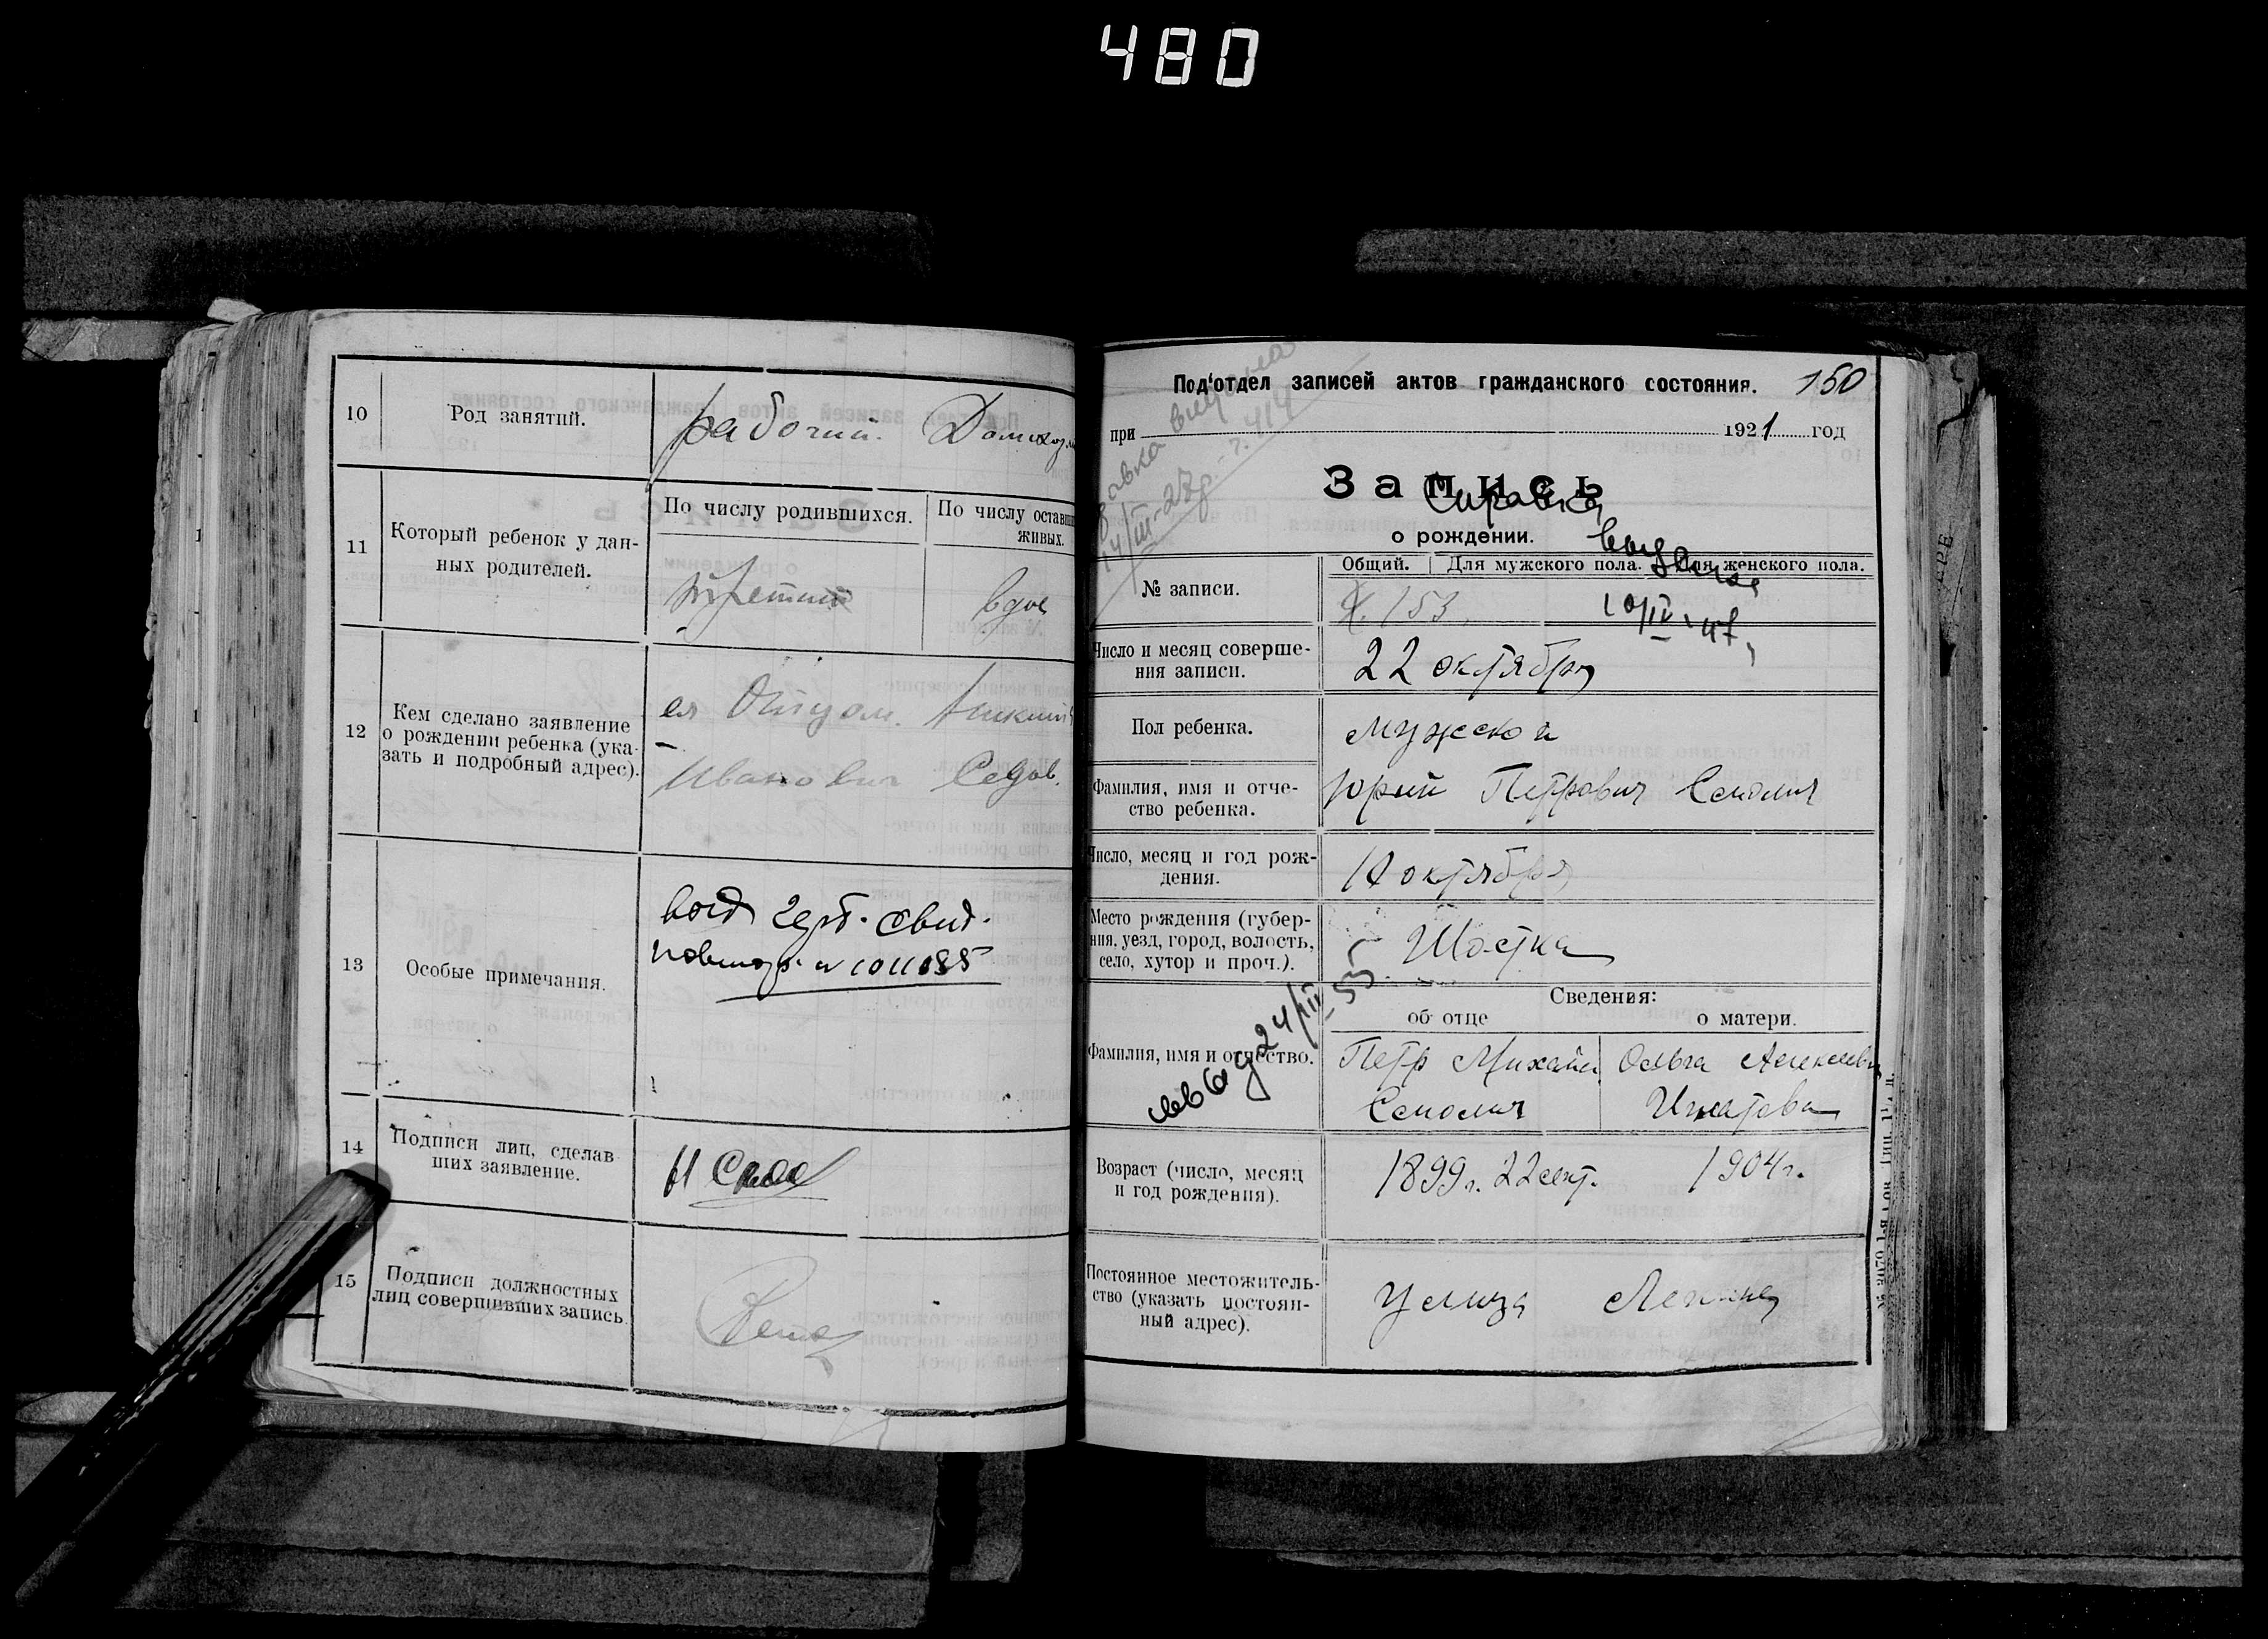 480
10
Род занятий.
рабочий.
11
Который ребенок у дан-
ных родителей.
По числу родившихся.
По числу оставши
живых.
третий
12
Кем сделано заявление
о рождении ребенка (ука-
зать и подробный адрес).
Отцом.
Иванович Седов.
13
Особые примечания.
герб. свид.
14
Подписи лиц, сделав
ших заявление.
15
Подписи должностных
лиц совершивших запись.
Под‘отдел записей актов гражданского состояния.
150
при
1921 год
Запись
Справка
о рождении.
выдана
10/IV-47
№ записи.
Общий.
Для мужского пола.
Для женского пола.
153
Число и месяц соверше-
ния записи.
22 октября
Пол ребенка.
мужской
Фамилия, имя и отче-
ство ребенка.
Юрий Петрович
Число, месяц и год рож-
дения.
октября
Место рождения (губер-
ния, уезд, город, волость,
село, хутор и проч.).
Шостка
Сведения:
об отце
о матери.
Фамилия, имя и отчество.
Петр Михайл.
Ольга Алексеевн
Игнатова
Возраст (число, месяц
и год рождения).
1899 г. 22 сент.
1904 г.
Постоянное местожитель-
ство (указать постоян-
ный адрес).
Улица Ленина